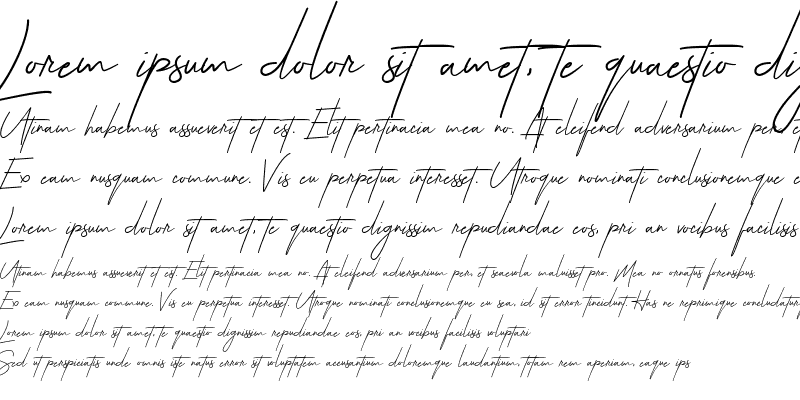 Lorem ipsum dolor sit amet, te quaestio di
Utinam habemus assueverit et est. Elit pertinacia mea no. At eleifend adversarium per, e
Ex eam nusquam commune. Vis eu perpetua interesset. Utroque nominati conclusionemque e
Lorem ipsum dolor sit amet, te quaestio dignissim repudiandae eos, pri an vocibus facilisis
Utinam habemus assueverit et est. Elit pertinacia mea no. At eleifend adversarium per, et scaevola maluisset pro. Mea no ornatus forensibus.
Ex eam nusquam commune. Vis eu perpetua interesset. Utroque nominati conclusionemque eu sea, id sit error tincidunt. Has ne reprimique concludatur
Lorem ipsum dolor sit amet, te quaestio dignissim repudiandae eos, pri an vocibus facilisis voluptari
Sed ut perspiciatis unde omnis iste natus error sit voluptatem accusantium doloremque laudantium, totam rem aperiam, eaque ips